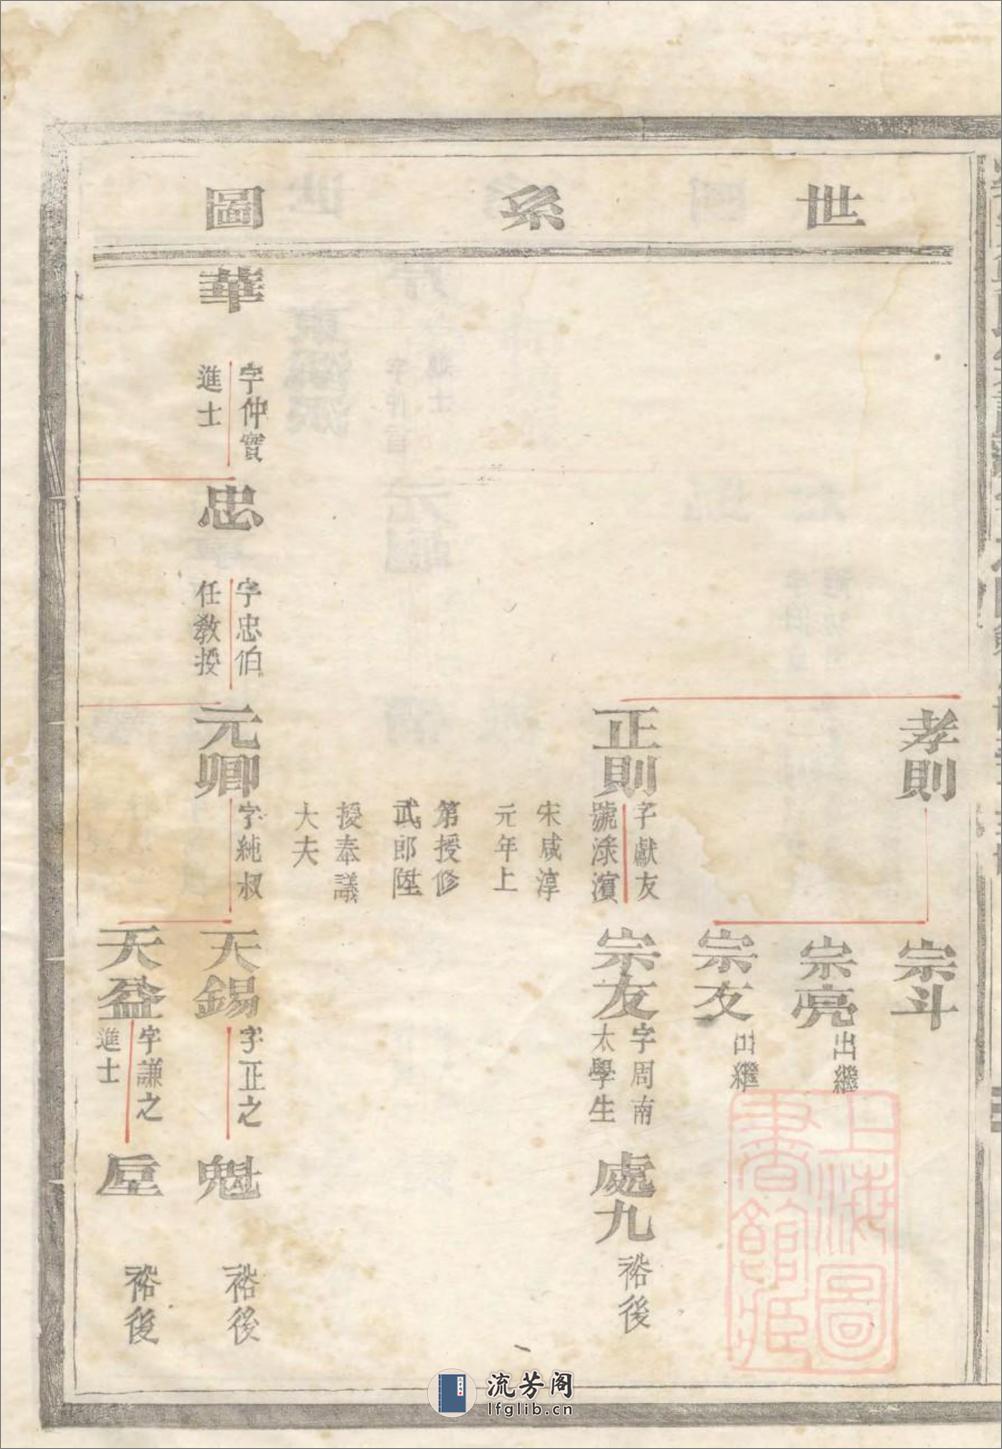 世系圖
孝則
宗斗
宗亮
出繼
宗友
出繼
正則
字獻友
號淥濱
宋咸淳
元年上
第授修
武郎陞
授奉議
大夫
宗友
字周南
太學生
處九
裕後
華
字仲實
進士
忠
字忠伯
任教授
元卿
字純叔
天錫
字正之
魁
裕後
天益
字謙之
進士
裕後
上海圖書館藏
流芳阁
lfglib.cn